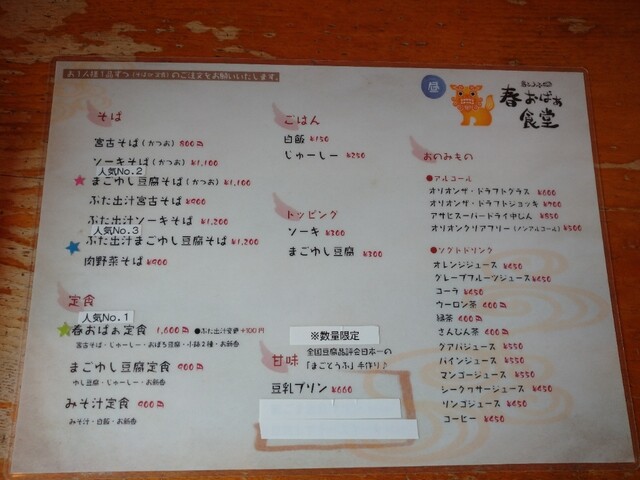 お1人様1品ずつ(そば or 定食)のご注文をお願いいたします。
昼
春おばぁ
食堂
そば
宮古そば(かつお) 800円
ソーキそば(かつお) ¥1,100
人気No.2
まごゆし豆腐そば(かつお) ¥1,100
ぶた出汁宮古そば ¥900
ぶた出汁ソーキそば ¥1,200
人気No.3
ぶた出汁まごゆし豆腐そば ¥1,200
肉野菜そば ¥900
定食
人気No.1
春おばぁ定食 1,600円 ●ぶた出汁変更+100円
宮古そば・じゅーしー・おぼろ豆腐・小鉢2種・お新香
まごゆし豆腐定食 900円
ゆし豆腐・じゅーしー・お新香
みそ汁定食 900円
みそ汁・白飯・お新香
ごはん
白飯 ¥150
じゅーしー ¥250
トッピング
ソーキ ¥300
まごゆし豆腐 ¥300
※数量限定
甘味
全国豆腐品評会日本一の
「まごとうふ」手作り♪
豆乳プリン ¥600
おのみもの
●アルコール
オリオンザ・ドラフトグラス ¥600
オリオンザ・ドラフトジョッキ ¥900
アサヒスーパードライ中じん ¥550
オリオンクリアフリー(ノンアルコール) ¥500
●ソフトドリンク
オレンジジュース ¥450
グレープフルーツジュース ¥450
コーラ ¥450
ウーロン茶 ¥400
緑茶 ¥400
さんじん茶 ¥400
グアバジュース ¥550
パインジュース ¥550
マンゴージュース ¥550
シークヮサージュース ¥450
リンゴジュース ¥450
コーヒー ¥450